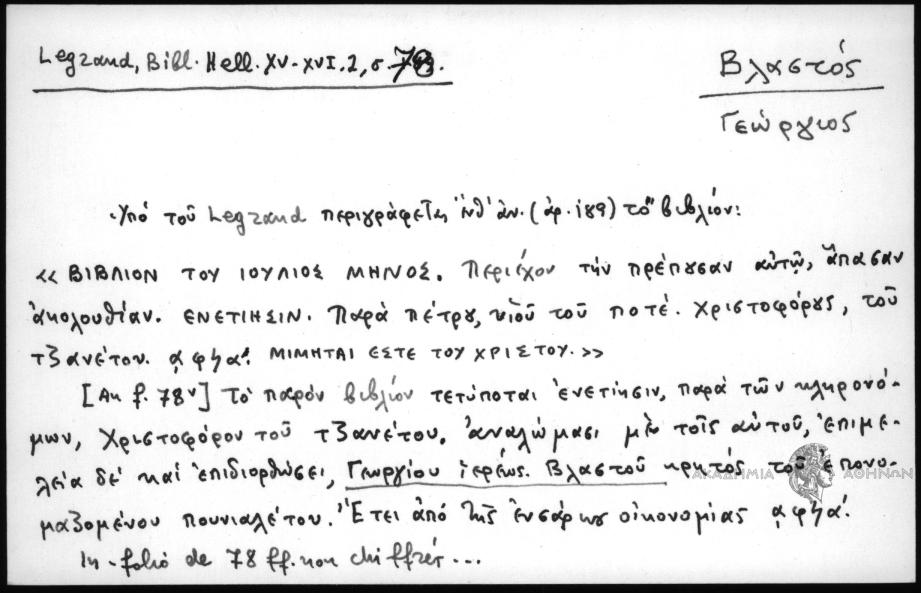 Legrand, Bibl. Hell. XV-XVI. 2, σ. 78.
Βλαστός
Γεώργιος
Ὑπό τοῦ Legrand περιγράφεται, ὑπ' ἀν. (ἀρ. 189) τό βιβλίον:
«ΒΙΒΛΙΟΝ ΤΟΥ ΙΟΥΛΙΟΣ ΜΗΝΟΣ. Περιέχον τήν πρέπουσαν αὐτῷ, ἅπασαν
ἀκολουθίαν. ΕΝΕΤΙΗΣΙΝ. Παρά πέτρου, υἱοῦ τοῦ ποτέ. Χριστοφόρου, τοῦ
τζανέτου. ͵αφϟα΄. ΜΙΜΗΤΑΙ ΕΣΤΕ ΤΟΥ ΧΡΙΣΤΟΥ.»
[Au f. 78v] Τό παρόν βιβλίον τετύποται ἐνετίησιν, παρά τῶν κληρονό-
μων, Χριστοφόρου τοῦ τζανέτου. ἀναλώμασι μέν τοῖς αὐτοῦ, ἐπιμε-
λεία δέ καί ἐπιδιορθώσει, Γεωργίου ἱερέως. Βλαστοῦ κρητός τοῦ ἐπονο-
μαζομένου πουνιαλέτου. Ἔτει ἀπό τῆς ἐνσάρκου οἰκονομίας ͵αφϟα΄.
In-folio de 78 ff. non chiffrés...
ΑΚΑΔΗΜΙΑ ΑΘΗΝΩΝ